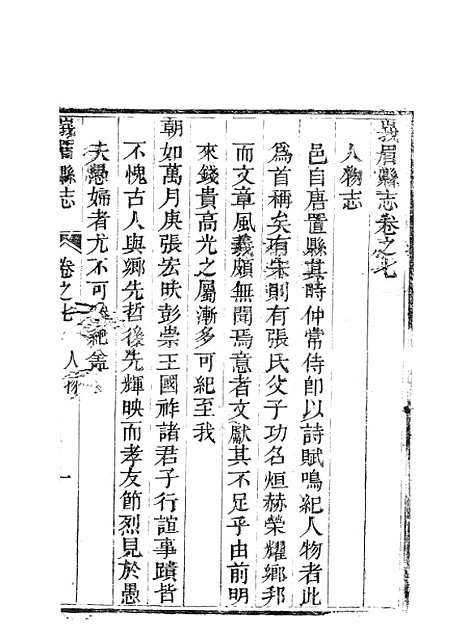 峩眉縣志卷之七
人物志
邑自唐置縣其時仲常侍卽以詩賦鳴紀人物者此
爲首稱矣有宋則有張氏父子功名烜赫榮耀鄉邦
而文章風義頗無聞焉意者文獻其不足乎由前明
來錢貴高光之屬漸多可紀至我
朝如萬月庚張宏昳彭崇王國祚諸君子行誼事蹟皆
不愧古人與鄉先哲後先輝映而孝友節烈見於愚
夫愚婦者尤不可紀
峩眉縣志 卷之七 人物 一